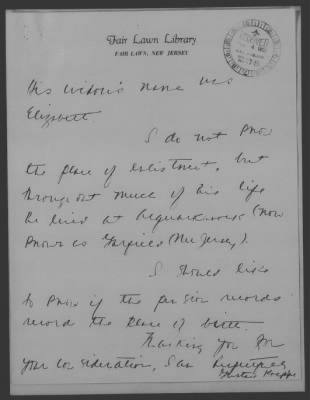 Fair Lawn Library
FAIR LAWN, NEW JERSEY
His widow's name was
Elizabeth.
I do not know
the place of enlistment, but
throughout much of his life
he lived at Acquackanonk (now
known as Garfield (New Jersey).
I should like
to know if the pension records
record the place of birth.
Thanking you for
your consideration, I am Respectfully